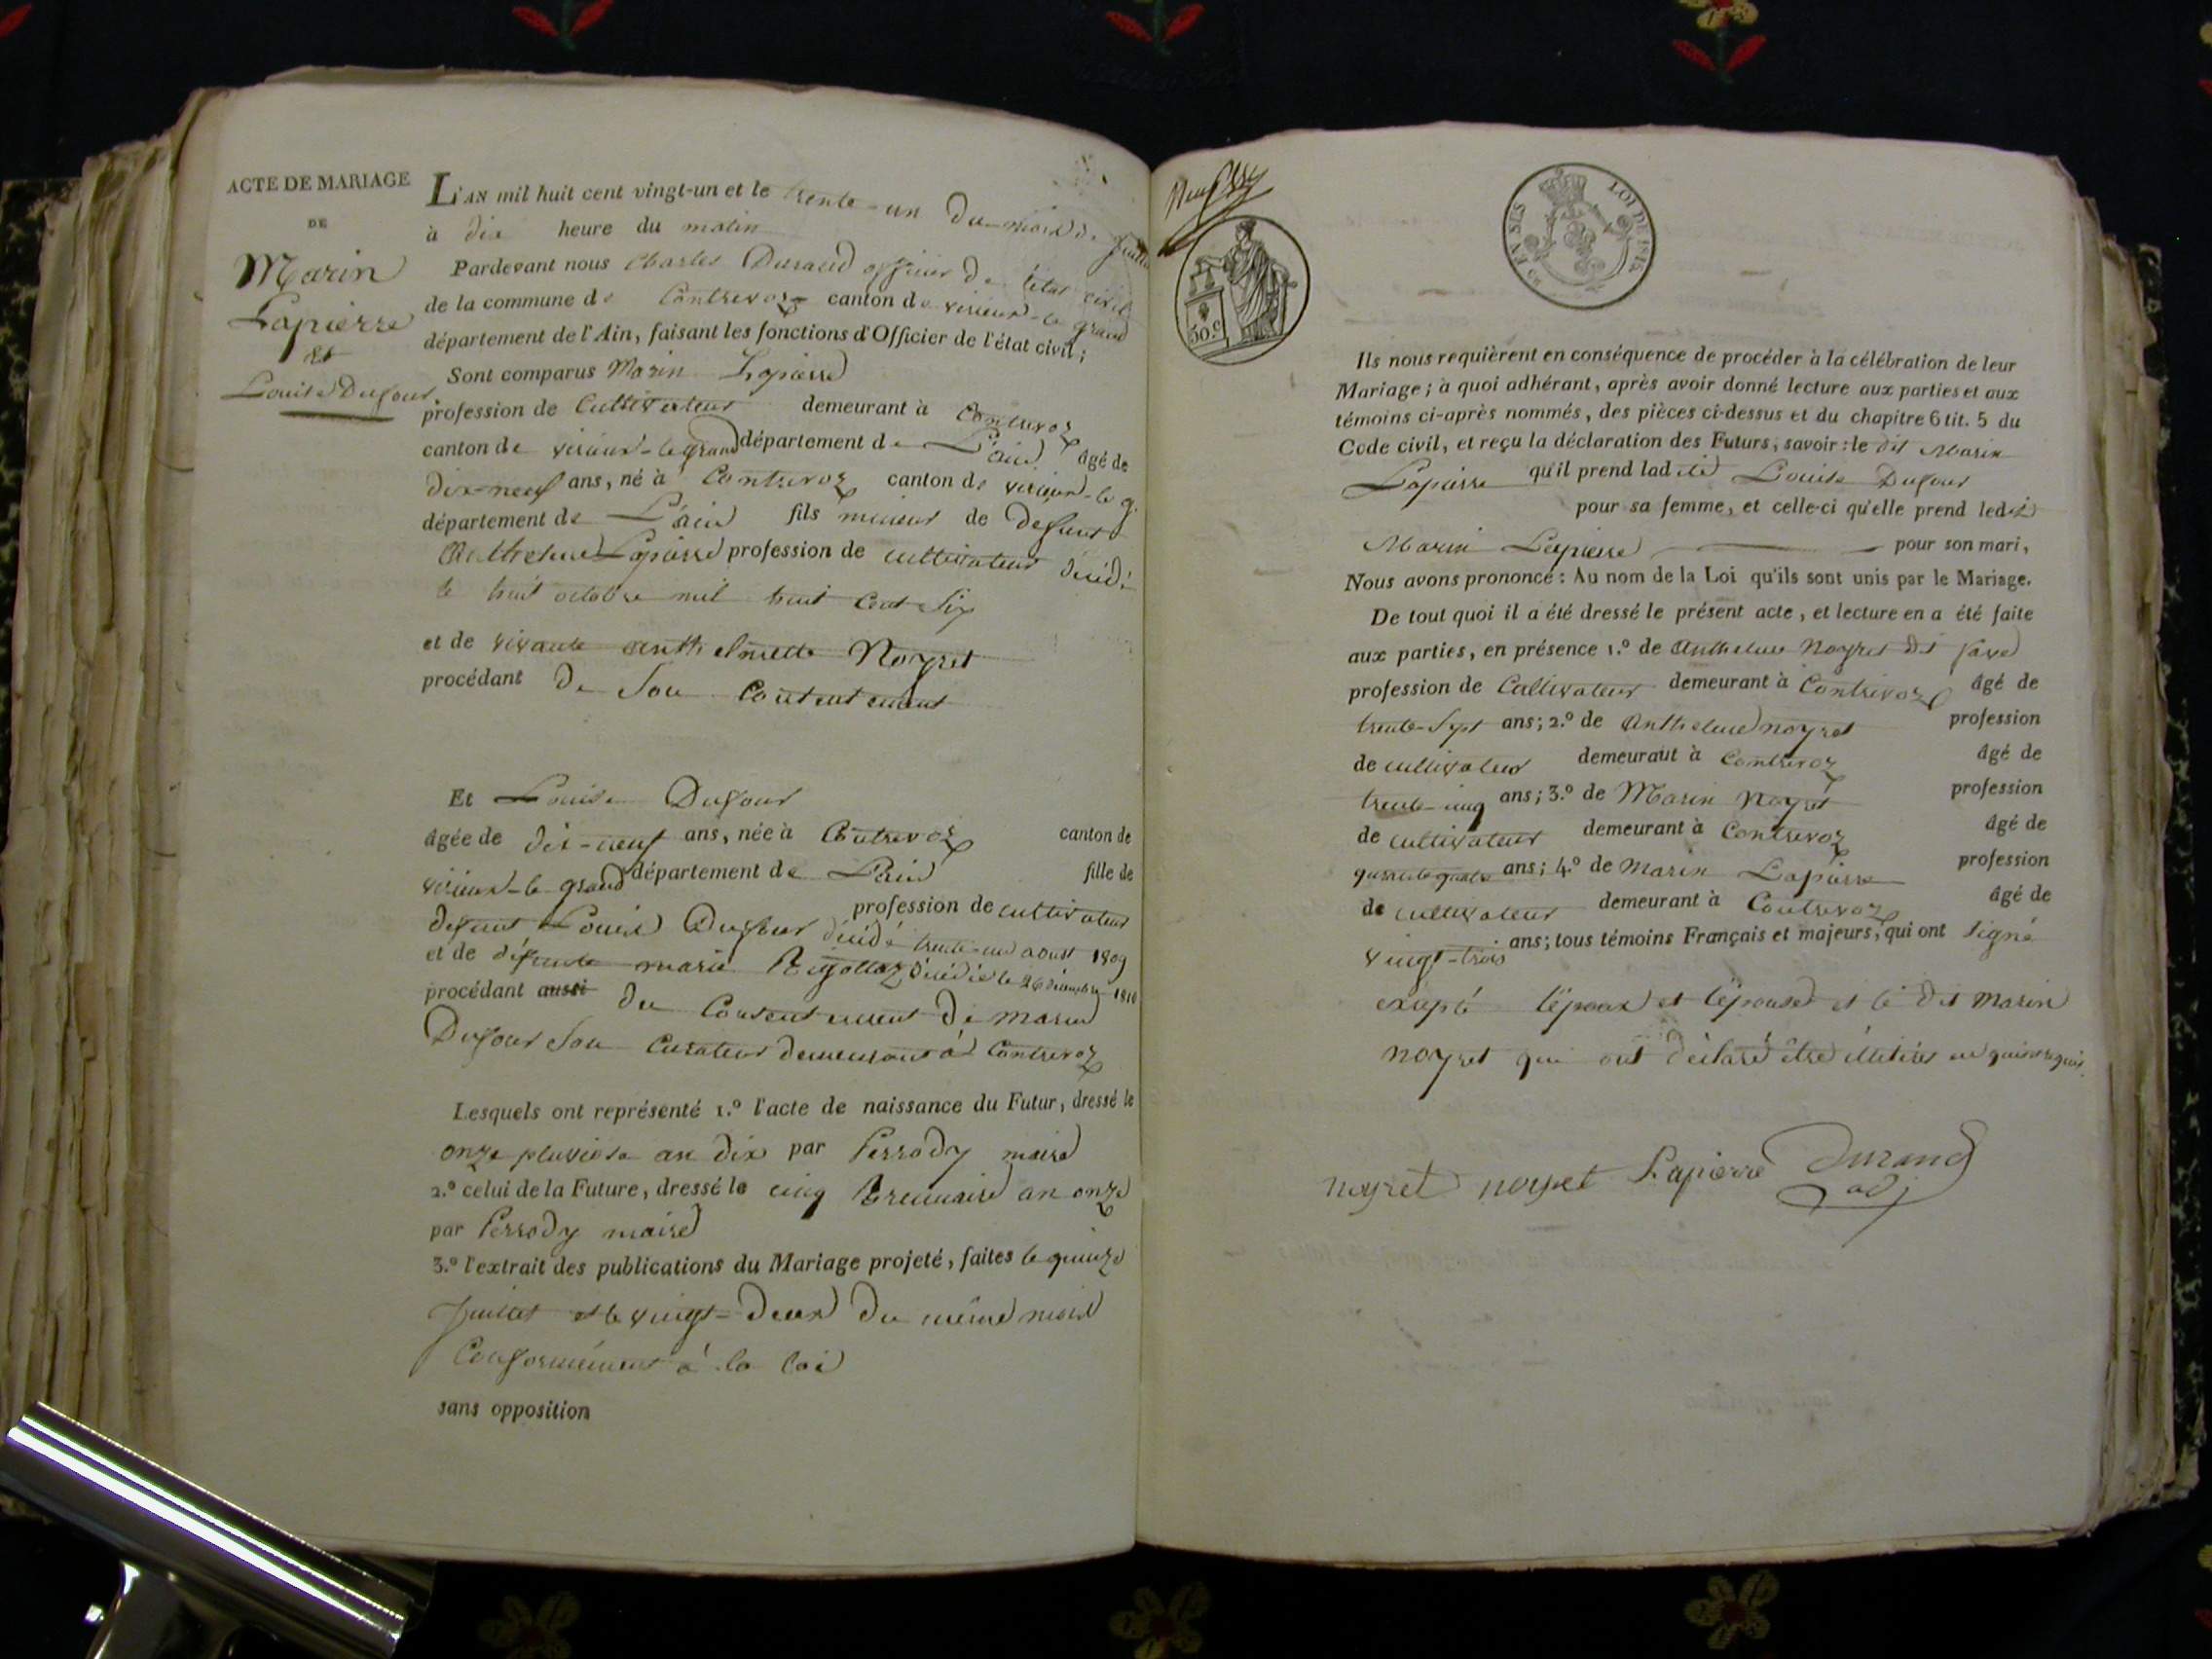 ACTE DE MARIAGE
DE
Marin
Lapierre
et
Louise Dufour
L'AN mil huit cent vingt-un et le trente-un du mois de juillet
à dix heure du matin
Pardevant nous Charles Durand officier de l'état civil
de la commune de Contrevoz canton de virieux-le grand
département de l'Ain, faisant les fonctions d'Officier de l'état civil;
Sont comparus Marin Lapierre
profession de Cultivateur demeurant à Contrevoz
canton de virieux-le grand département de L'ain âgé de
dix-neuf ans, né à Contrevoz canton de virieux-le g.
département de L'ain fils mineur de defunt
Anthelme Lapierre profession de cultivateur décédé
le huit octobre mil huit cent six
et de vivante anthelmette Noyret
procédant de Son Contentement
Et Louise Dufour
âgée de dix-neuf ans, née à Contrevoz canton de
virieux-le grand département de L'ain fille de
defunt Louis Dufour profession de cultivateur
décédé trente-un aoust 1809
et de défunte marie Rigollaz décédée le 26 décembre 1810
procédant aussi du Consentement de marin
Dufour Son Curateur demeurant à Contrevoz
Lesquels ont représenté 1.º l'acte de naissance du Futur, dressé le
onze pluviose an dix par Perrody maire
2.º celui de la Future, dressé le cinq Brumaire an onze
par Perrody maire
3.º l'extrait des publications du Mariage projeté, faites le quinze
Juillet et le vingt-deux du même mois
Conformément à la loi
sans opposition
LOI DE 1816
50.c
Ils nous requièrent en conséquence de procéder à la célébration de leur
Mariage; à quoi adhérant, après avoir donné lecture aux parties et aux
témoins ci-après nommés, des pièces ci-dessus et du chapitre 6 tit. 5 du
Code civil, et reçu la déclaration des Futurs, savoir: le dit Marin
Lapierre qu'il prend lad ite Louise Dufour
pour sa femme, et celle-ci qu'elle prend led it
Marin Lapierre pour son mari,
Nous avons prononcé: Au nom de la Loi qu'ils sont unis par le Mariage.
De tout quoi il a été dressé le présent acte, et lecture en a été faite
aux parties, en présence 1.º de Anthelme Noyret dit
profession de Cultivateur demeurant à Contrevoz âgé de
trente-Sept ans; 2.º de Anthelme noyret profession
de cultivateur demeurant à Contrevoz âgé de
trente-cinq ans; 3.º de Marin Noyret profession
de cultivateur demeurant à Contrevoz âgé de
quarante quatre ans; 4.º de Marin Lapierre profession
de cultivateur demeurant à Contrevoz âgé de
vingt-trois ans; tous témoins Français et majeurs, qui ont signé
excepté l'époux et l'épouse et le dit Marin
noyret qui ont déclaré être illitérés
noyret noyret Lapierre Durand
adj